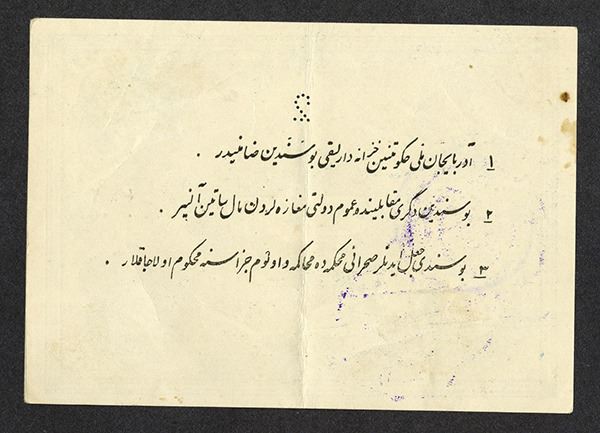 ١ آذربایجان ملی حکومتینین خزانه داریلیقی بو سَنَدین ضامنیدر .
٢ بو سندین دگری مقابلینده عموم دولتی مغازه لردن مال ساتین آلنیر .
٣ بو سندی جعل ایدنلر صحرائی محکمه ده محاکمه و اولوم جزاسنه محکوم اولاجاقلار .